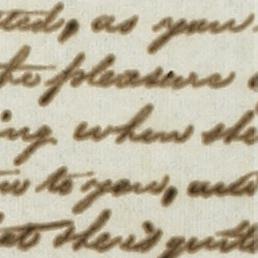 ted, as you
the pleasure
ing when she
to you, and
at she is quite